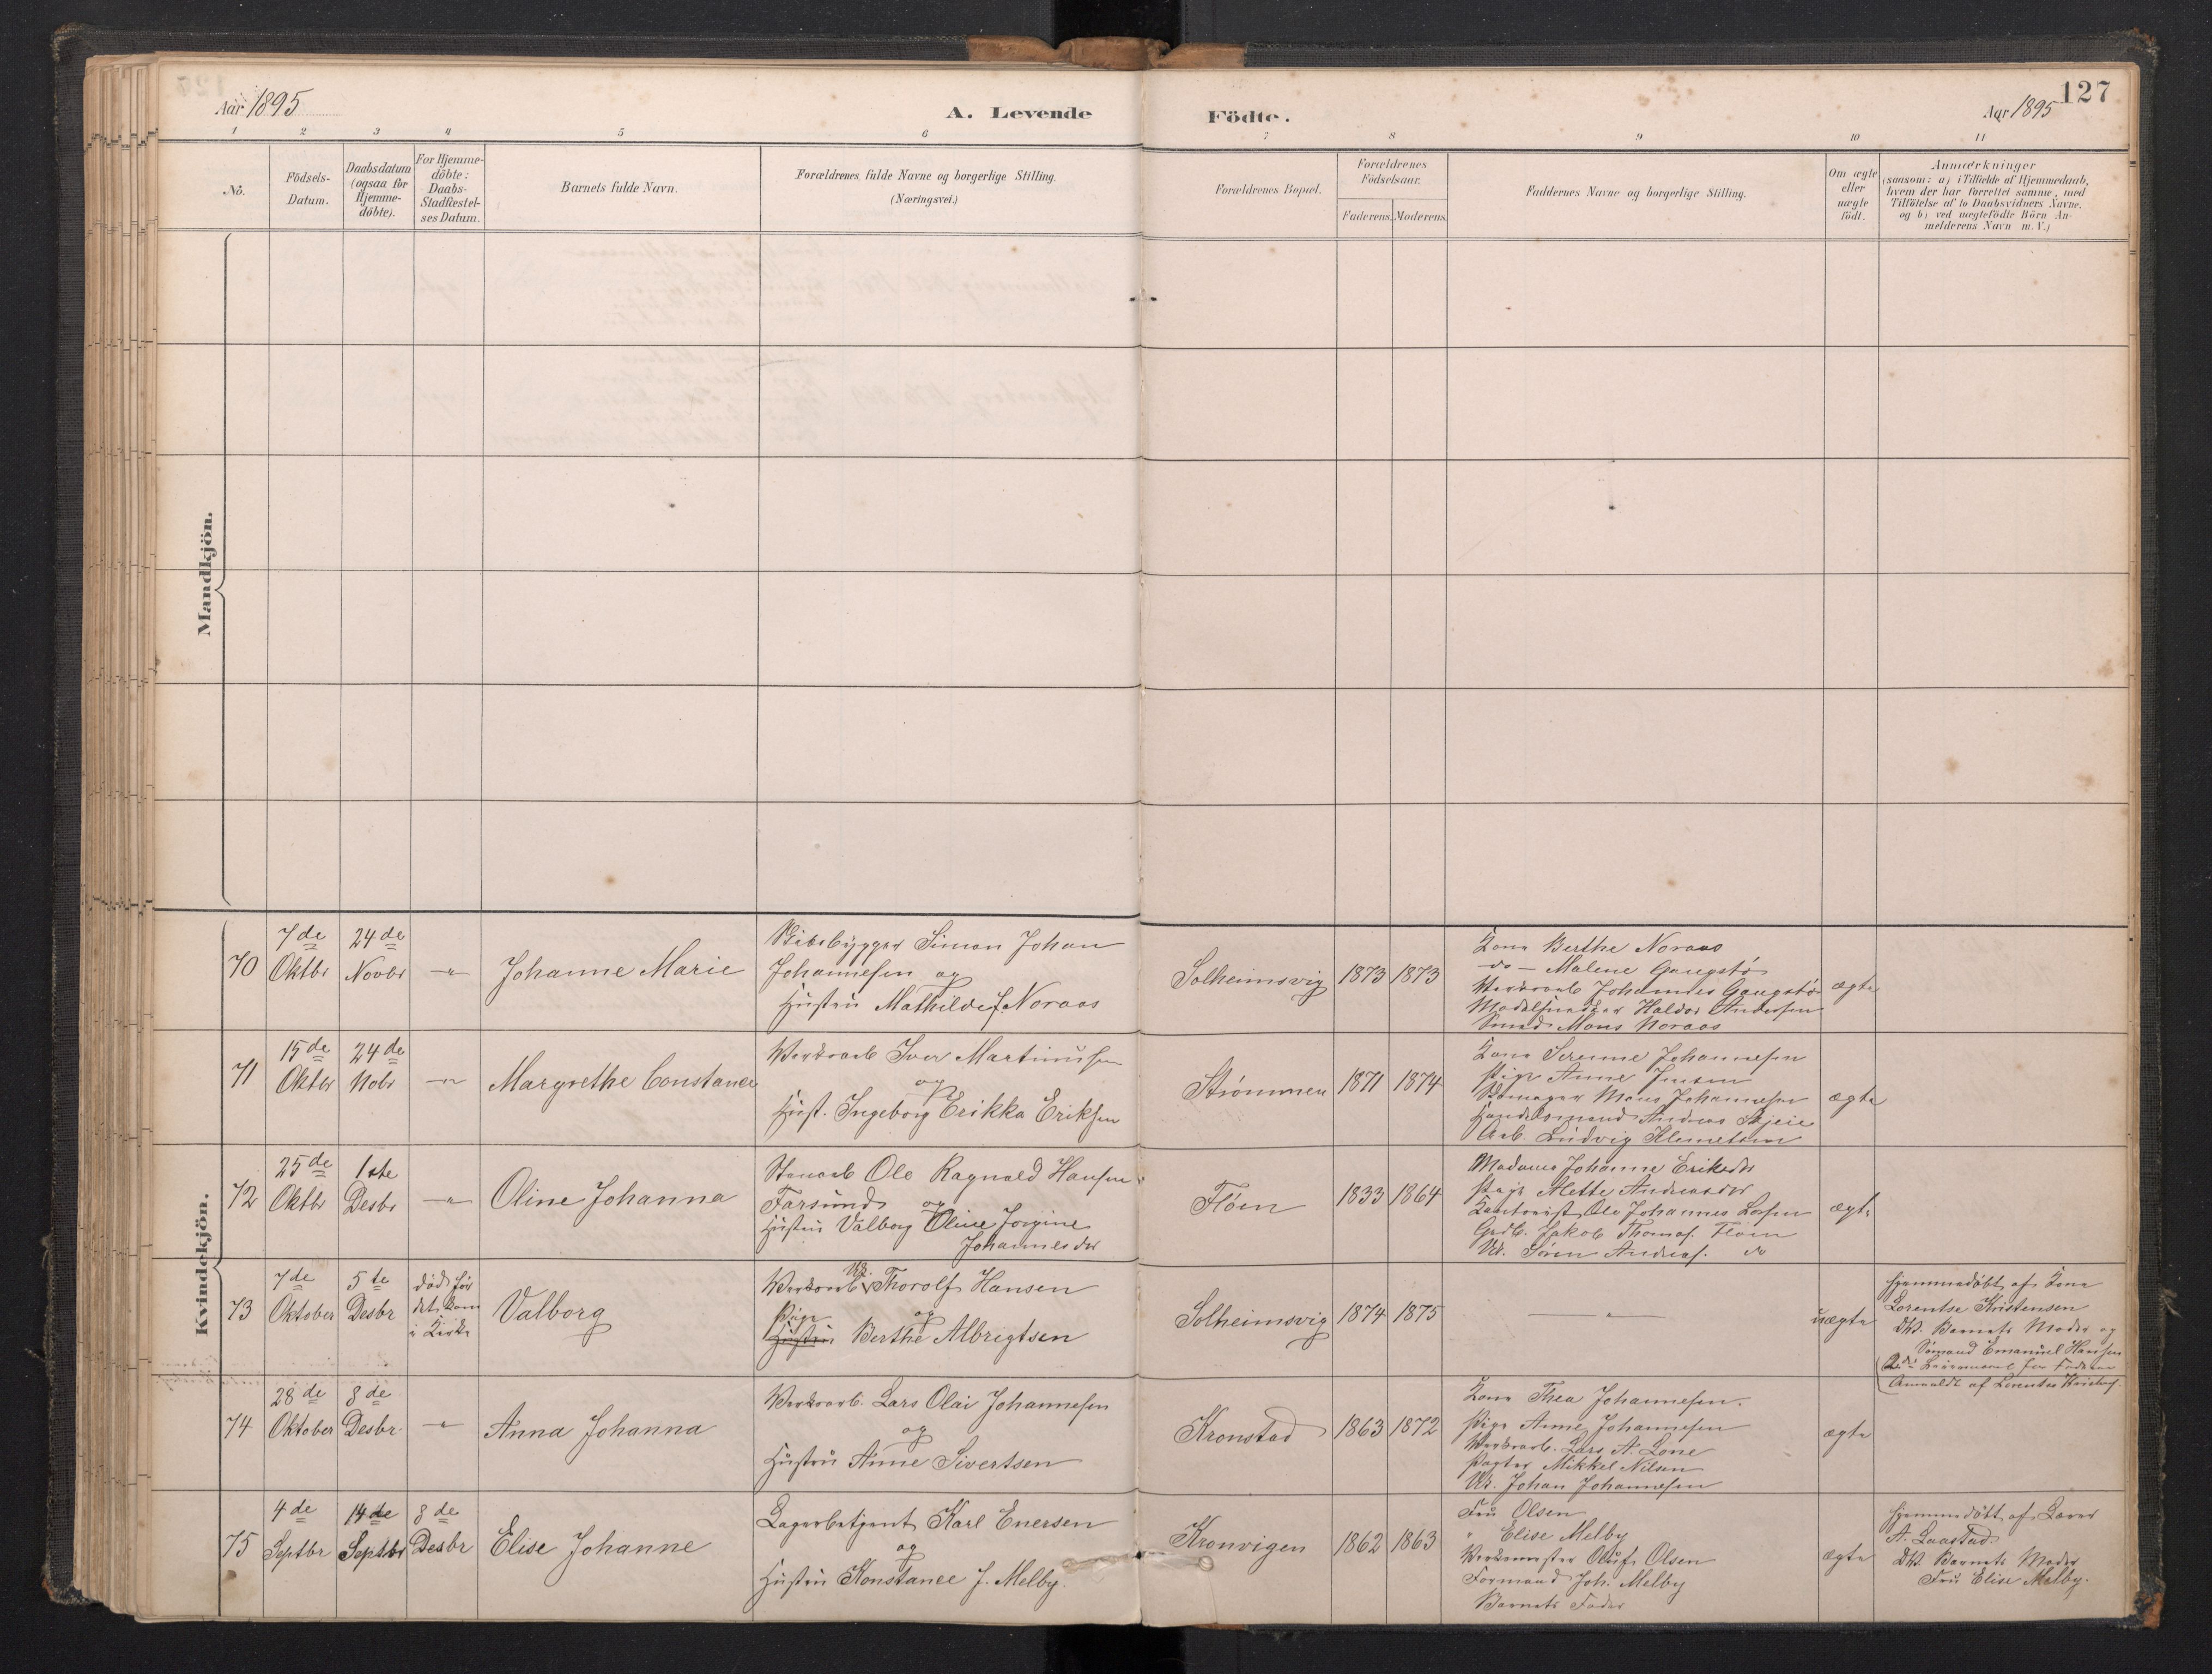 127
Aar 1895
A. Levende
Födte.
Aar 1895
1
2
3
4
5
6
7
8
9
10
11
No.
Födsels-
Datum.
Daabsdatum
(ogsaa for
Hjemme-
döbte).
For Hjemme-
döbte:
Daabs-
Stadfæstel-
ses Datum.
Barnets fulde Navn.
Forældrenes fulde Navne og borgerlige Stilling.
(Næringsvei.)
Forældrenes Bopæl.
Forældrenes
Födselsaar.
Faderens.
Moderens.
Faddernes Navne og borgerlige Stilling.
Om ægte
eller
uægte
födt.
Anmærkninger
(saasom: a) i Tilfælde af Hjemmedaab,
hvem der har forrettet samme, med
Tilföielse af to Daabsvidners Navne,
og b) ved uægtefödte Börn An-
melderens Navn m. V.)
Mandkjön.
Kvindekjön.
70
7de
Oktbr
24de
Novbr
—"—
Johanne Marie
Skibsbygger Simon Johan
Johannesen og
Hustru Mathilde J. Noraas
Solheimsvig
1873
1873
Kone Berthe Noraas
—do— Malene Gangstø
Værksarb Johannes Gangstø
Modelsnedker Haldor Andersen
Smed Mons Noraas
ægte
71
15de
Oktbr
24de
Nobr
—"—
Margrethe Constance
Værksarb Iver Martinusen
og
Hust. Ingeborg Erikka Eriksen
Strømmen
1871
1874
Kone Serenne Johannesen
Pige Anne Jensen
Mons Johannesen
Handelsmand Andreas Skjeie
Arb. Ludvig Klemetsen
ægte
72
25de
Oktbr
1ste
Desbr
—"—
Oline Johanna
Ole Ragnald Hansen
Farsund og
Hustru Valborg Oline Jorgine
Johannesdtr
Fløen
1833
1864
Madame Johanne Eriksdtr
Pige Mette Andreasdtr
Kontorist Ole Johannes Larsen
Grdb. Jakob Thomas. Fløen
Uk. Søren Andreas. do
ægte
73
7de
Oktober
5te
Desbr
død før
det kom
i Kirke
Valborg
Værksarb Uk. Thorolf Hansen
og
Pige
Hustru Berthe Albrigtsen
Solheimsvig
1874
1875
—"—
uægte
Hjemmedøbt af Kone
Lorentse Kristensen
DV. Barnets Moder og
Sømand Emanuel Hansen
2det Leiermaal for Faderen
Anmeldt af Lorentse Kristens.
74
28de
Oktober
8de
Desbr.
—"—
Anna Johanna
Værksarb. Lars Olai Johannesen
og
Hustru Anne Sivertsen
Kronstad
1863
1872
Kone Thea Johannesen.
Pige Anne Johannesen
Værksarb. Lars A. Lone
Pagter Mikkel Nilsen
Uk. Johan Johannesen
ægte
75
4de
Septbr
14de
Septbr
8de
Desbr
Elise Johanne
Lagerbetjent Karl Enersen
og
Hustru Konstance J. Melby.
Kronvigen
1862
1863
Fru Olsen
" Elise Melby
Værksmester Oluf Olsen
Formand Joh. Melby
Barnets Fader
ægte
Hjemmedøbt af Lærer
A. Laastad
DV. Barnets Moder
Fru Elise Melby.